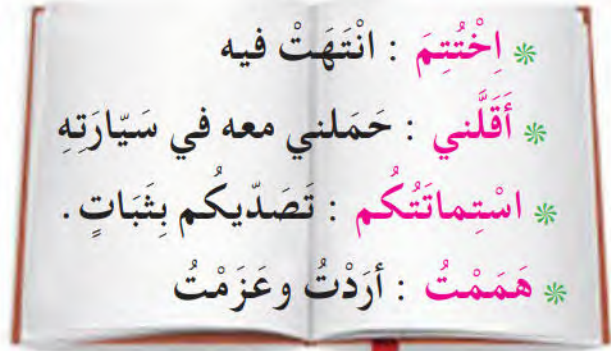 * اِخْتُتِمَ : انْتَهَتْ فيه
* أَقَلَّني : حَمَلني معه في سَيّارَتِهِ
* اسْتِماتَتُكُم : تَصَدّيكُم بِثَبَاتٍ .
* هَمَمْتُ : أرَدْتُ وعَزَمْتُ